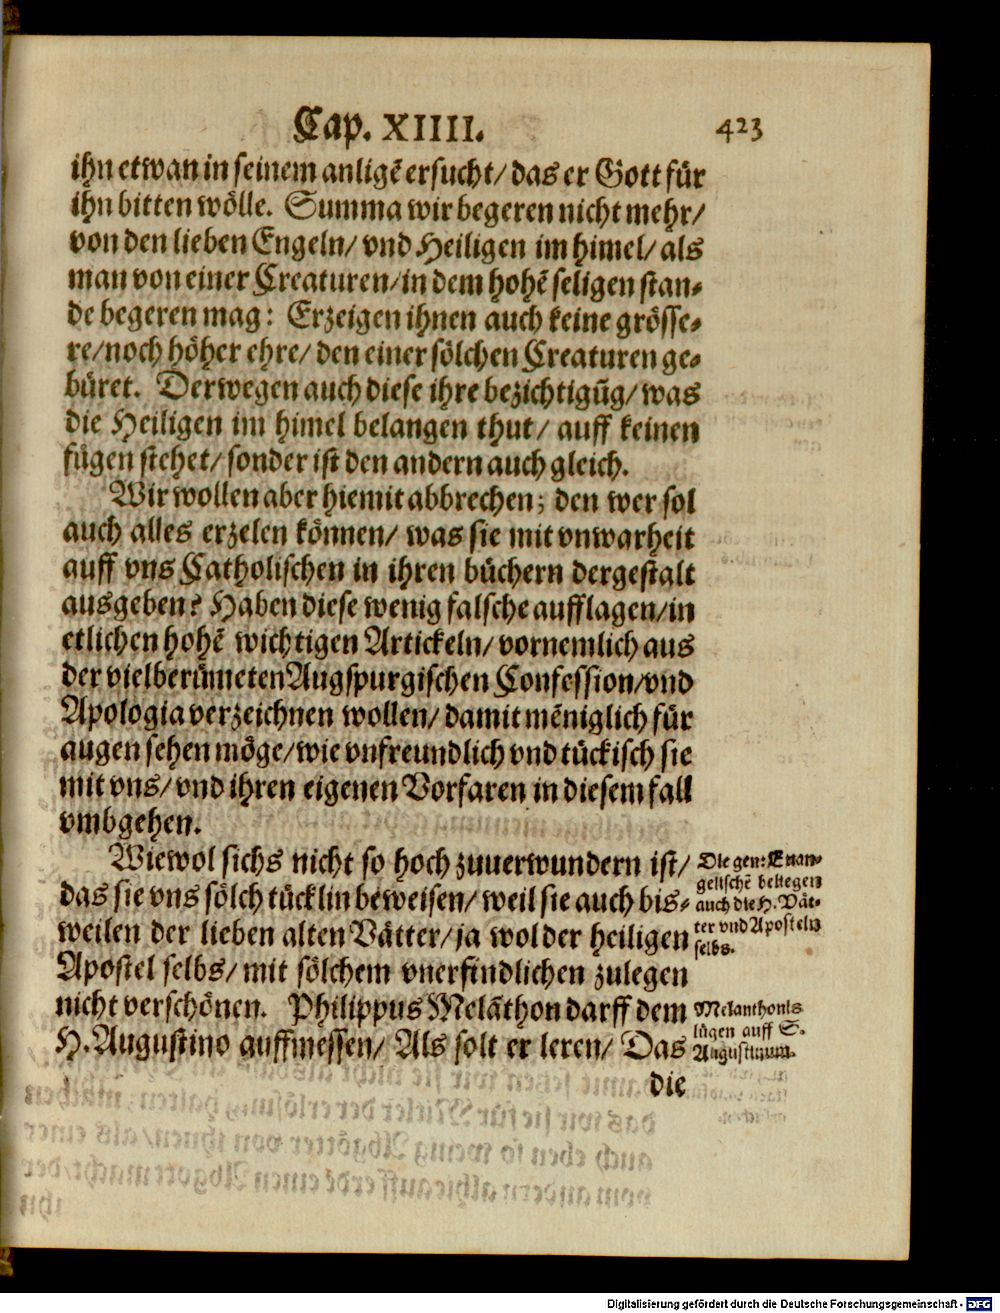 Cap. XIIII. 423
ihn etwan in seinem anligẽ ersucht/ das er Gott für
ihn bitten wölle. Summa wir begeren nicht mehr/
von den lieben Engeln/ vnd Heiligen im himel/ als
man von einer Creaturen/ in dem hohẽ seligen stan⸗
de begeren mag: Erzeigen ihnen auch keine grösse⸗
re/ noch höher ehre/ den einer sölchen Creaturen ge⸗
büret. Derwegen auch diese ihre bezichtigũg/ was
die Heiligen im himel belangen thut/ auff keinen
fügen stehet/ sonder ist den andern auch gleich.
Wir wollen aber hiemit abbrechen; den wer sol
auch alles erzelen können/ was sie mit vnwarheit
auff vns Catholischen in ihren büchern dergestalt
ausgeben? Haben diese wenig falsche aufflagen/ in
etlichen hohẽ wichtigen Artickeln/ vornemlich aus
der vielberümeten Augspurgischen Confession/ vnd
Apologia verzeichnen wollen/ damit mẽniglich für
augen sehen möge/ wie vnfreundlich vnd tückisch sie
mit vns/ vnd ihren eigenen Vorfaren in diesem fall
vmbgehen.
Wiewol sichs nicht so hoch zuuerwundern ist/
das sie vns sölch tücklin beweisen/ weil sie auch bis⸗
weilen der lieben alten Vätter/ ja wol der heiligen
Apostel selbs/ mit sölchem vnerfindlichen zulegen
nicht verschönen. Philippus Melãthon darff dem
H. Augustino auffmessen/ Als solt er leren/ Das
die
Die gen: Euan⸗
gelischẽ beliegen
auch die H. Vät⸗
ter vnd Aposteln
selbs.
Melanthonis
lügen auff S.
Augustinum.
Digitalisierung gefördert durch die Deutsche Forschungsgemeinschaft - DFG